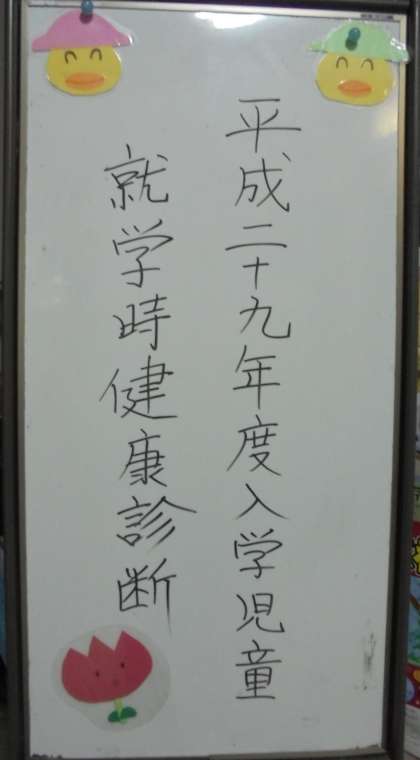 平成二十九年度入学児童
就学時健康診断